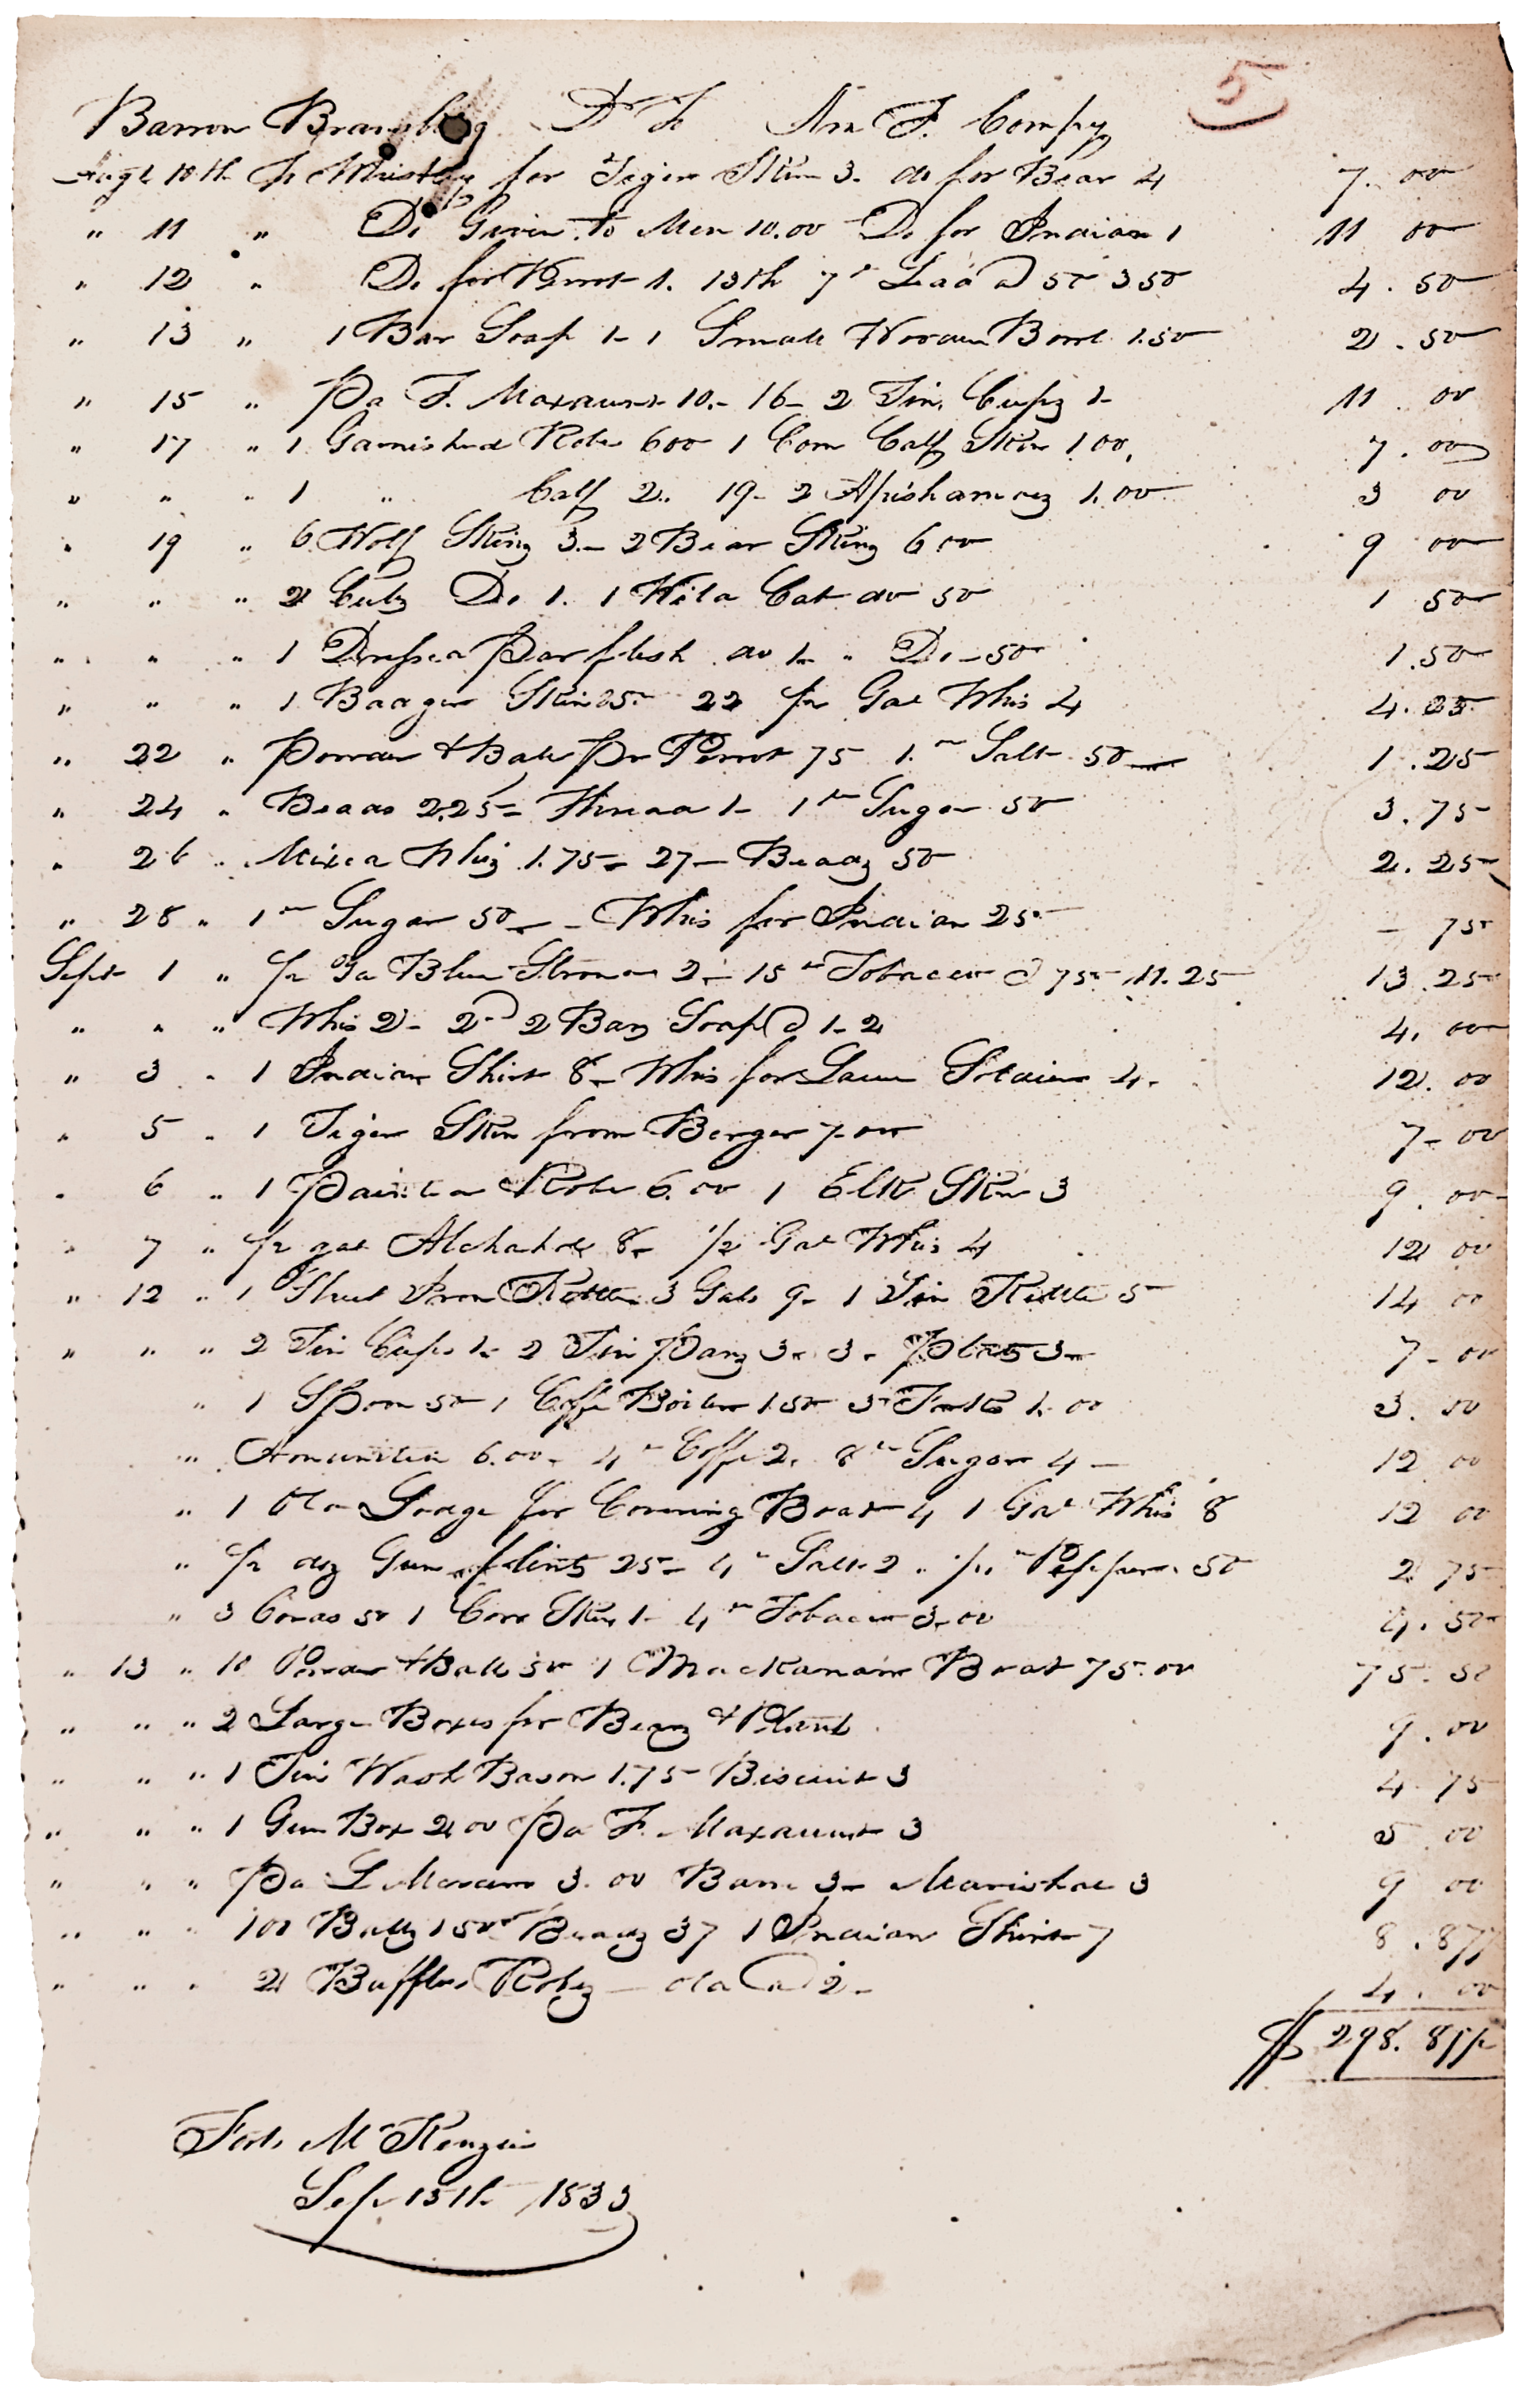 5
Barron Bransberg Dr To Am F. Compy
Augt 10th To Whiskey for Tiger Skin 3. do for Bear 4 7. 00
" 11 " Do Given to Men 10.00 Do for Indian 1 11 00
" 12 " Do for Perrot 1. 13th 7 " Lead @ 50 3 50 4. 50
" 13 " 1 Bar Soap 1- 1 Small Wooden Bowl 1.50 2. 50
" 15 " Pd F. 10.- 16- 2 Tin Cups 1- 11. 00
" 17 " 1 Garnished Robe 600 1 Com Calf Skin 1 00, 7. 00
" " " 1 " Calf 2.. 19- 2 Apishamey 1.00 3 00
" 19 " 6 Wolf Skins 3.- 2 Bear Skins 6 00 9 00
" " " 2 Cubs Do 1. 1 Wild Cat do 50 1 50
" " " 1 Dressed Parflesh do 1- " Do - 50 1.50
" " " 1 Badger Skin 25- 22 1/2 Gal Whis 4 4. 25
" 22 " Powder & Balls Pr Perrot 75 1." Salt 50 1. 25
" 24 " Beads 2.25- Thread 1- 1 " Sugar 50 3. 75
" 26 " Mixed Whis 1.75- 27- Beads 50 2. 25
" 28 " 1 " Sugar 50- - Whis for Indian 25 - 75
Sept 1 " 1/2 Yd Blue Stroud 2- 15 " Tobacco @ 75 11.25 13. 25
" " " Whis 2- 2nd 2 Bars Soap @ 1- 2 4. 00
" 3 " 1 Indian Shirt 8- Whis for 4. 12. 00
" 5 " 1 Tiger Skin from Berger 7.00 7- 00
" 6 " 1 Painted Robe 6.00 1 Elk Skin 3 9. 00
" 7 " 1/2 gal Alchahol 8- 1/2 Gal Whis 4 12 00
" 12 " 1 Sheet Iron Kettle 3 Gals 9- 1 Tin Kettle 5 14 00
" " " 2 Tin Cups 1- 2 Tin Pans 3- 3- Plates 3- 7- 00
" 1 Spoon 50 1 Coffe Boiler 1.50 3 Forks 1.00 3. 00
" Amunition 6.00- 4 " Coffe 2. 8 " Sugar 4- 12 00
" 1 Old Lodge for Covering Boat 4 1 Gal Whis 8 12 00
" 1/2 doz Gun flints 25- 4 " Salt 2. " Pepper 50 2 75
" 3 Cords 50 1 Cow Skin 1- 4 " Tobacco 3.00 4. 50
" 13 " 10 Powder & Balls 50 1 Mackanaw Boat 75.00 75. 50
" " " 2 Large Boxes for Bears & Plants 9. 00
" " " 1 Tin Wash Bason 1.75 Biscuit 3 4 75
" " " 1 Gun Box 2.00 Pd F. 3 5 00
" " " Pd L 3.00 3- 3 9 00
" " " 100 Balls 1 50 Beads 37 1 Indian Shirt 7 8. 87½
" " " 2 Buffloe Robes - old @ 2- 4. 00
$ 298. 87½
Fort McKenzie
Sep 13th 1833